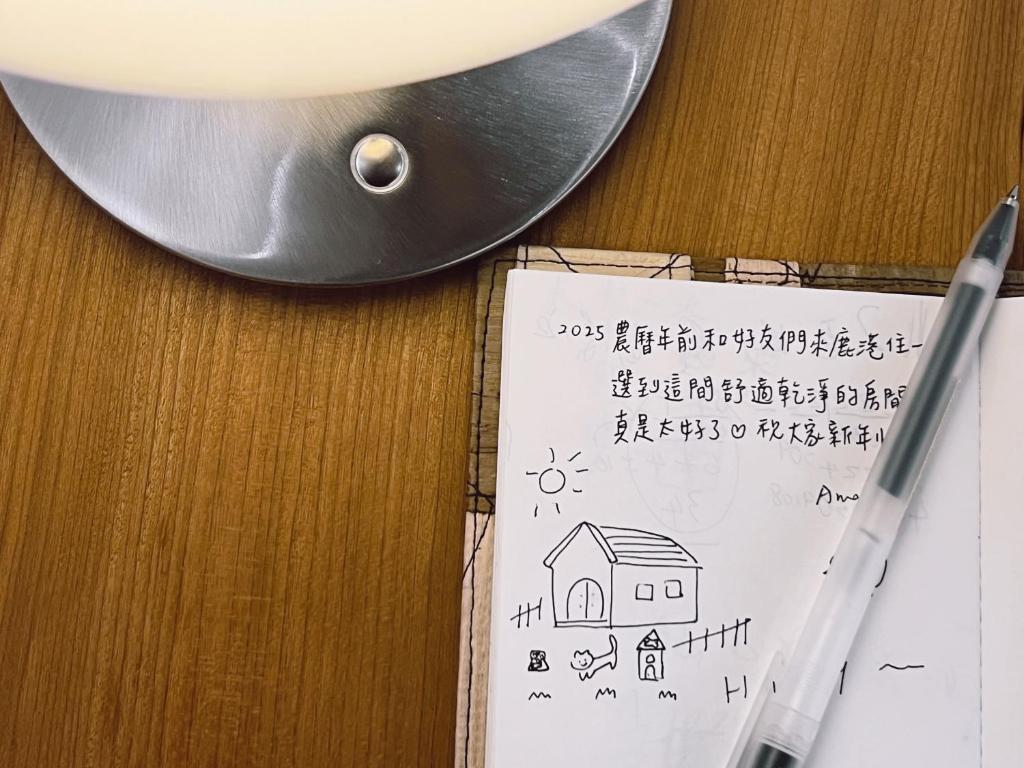 2025 農曆年前和好友們來鹿港住一
選到這間舒適乾淨的房間
真是太好了♡祝大家新年